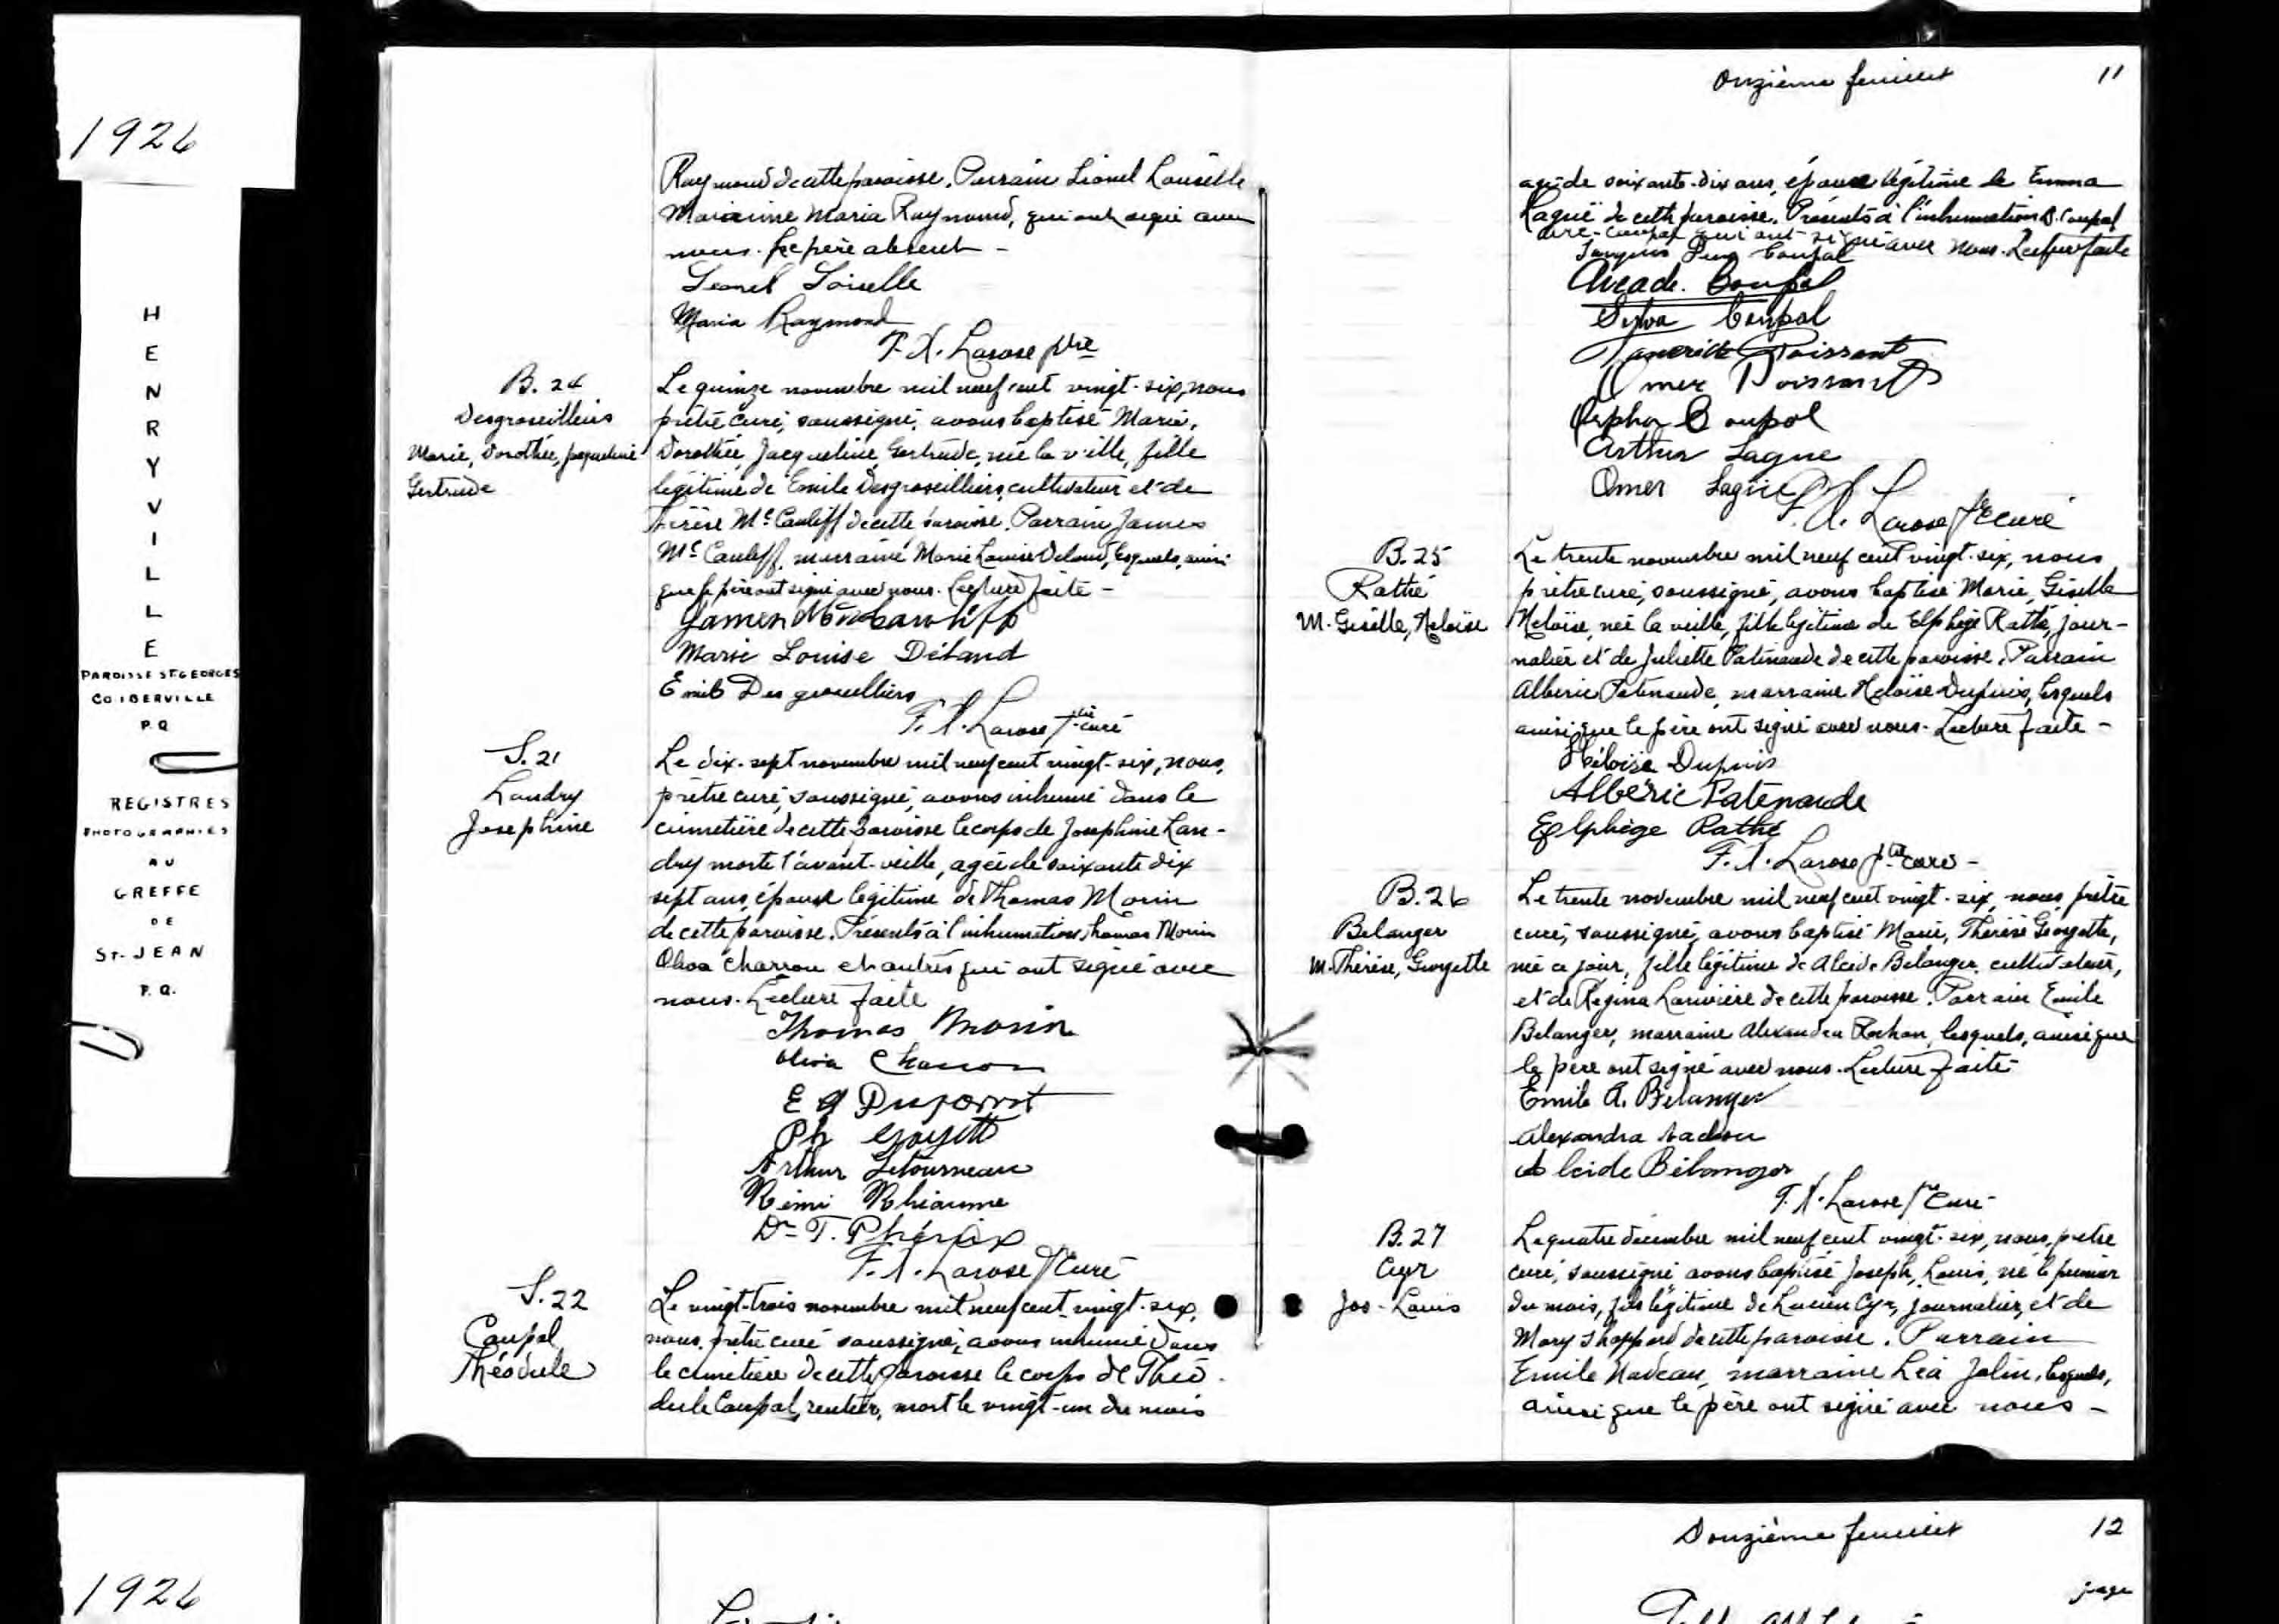 1926
HENRYVILLE
PAROISSE ST-GEORGES
CO IBERVILLE
P.Q
REGISTRES
PHOTOGRAPHIES
AU
GREFFE
DE
ST-JEAN
P.Q.
Raymond de cette paroisse. Parrain Lionel Loiselle
Marainne Maria Raymond, qui ont signé avec
nous. Le père absent -
Leonel Loiselle
Maria Raymond
F. X. Larose ptre
B. 24
Desgroseilliers
Marie, Dorothée, Jacqueline
Gertrude
Le quinze novembre mil neuf cent vingt-six, nous
prêtre curé, soussigné, avons baptisé Marie,
Dorothée, Jacqueline Gertrude, née la veille, fille
légitime de Emile Desgroseilliers, cultivateur et de
McCauliff de cette paroisse. Parrain James
McCauliff, marraine Marie Louise Deland, lesquels, ainsi
que le père ont signé avec nous. Lecture faite -
James
Marie Louise Déland
Emile Desgroseilliers
F. X. Larose ptre curé
S. 21
Landry
Josephine
Le dix-sept novembre mil neuf cent vingt-six, nous,
prêtre curé, soussigné, avons inhumé dans le
cimetière de cette paroisse le corps de Josephine Lan-
dry morte l'avant-veille, agée de soixante dix
sept ans, épouse légitime de Thomas Morin
de cette paroisse. Présents à l'inhumation, Thomas Morin
Oliva Charron et autres qui ont signé avec
nous. Lecture faite
Thomas Morin
Oliva Charron
E
Ph Goyette
Arthur Letourneau
Rémi Rhéaume
Dr T. Phénix
F. X. Larose ptre Curé
S. 22
Coupal
Théodule
Le vingt-trois novembre mil neuf cent vingt-six,
nous, prêtre curé soussigné, avons inhumé dans
le cimetière de cette paroisse le corps de Théo-
dule Coupal, rentier, mort le vingt-un du mois
Onzième feuillet 11
agé de soixante-dix ans, époux légitime de Emma
Lagüe de cette paroisse. Présents à l'inhumation Coupal
Coupal qui ont signé avec nous. Lecture faite
Coupal
Arcade. Coupal
Sylva Coupal
Poissant
Omer Poissant
Orpha Coupal
Arthur Lague
Omer Lague
F. X. Larose ptre curé
B. 25
Rathé
M. Giselle, Heloïse
Le trente novembre mil neuf cent vingt-six, nous
prêtre curé, soussigné, avons baptisé Marie, Giselle
Heloïse, née la veille, fille légitime de Elphège Rathé, jour-
nalier et de Juliette Patenaude de cette paroisse. Parrain
Alberic Patenaude, marraine Heloïse Dupuis, lesquels
ainsi que le père ont signé avec nous. Lecture faite -
Héloise Dupuis
Albéric Patenaude
Elphège Rathé
F. X. Larose ptre curé -
B. 26
Belanger
M. Thérèse, Georgette
Le trente novembre mil neuf cent vingt-six, nous, prêtre
curé, soussigné, avons baptisé Marie, Thérèse Georgette,
née ce jour, fille légitime de Alcide Belanger, cultivateur,
et de Régina Larivière de cette paroisse. Parrain Emile
Belanger, marraine Alexandra, lesquels, ainsi que
le père ont signé avec nous. Lecture faite -
Emile A. Bélanger
Alexandra
Alcide Bélanger
F. X. Larose ptre Curé -
B. 27
Cyr
Jos-Louis
Le quatre décembre mil neuf cent vingt-six, nous, prêtre
curé, soussigné avons baptisé Joseph, Louis, né le premier
du mois, fils légitime de Lucien Cyr, journalier, et de
Mary Sheppard de cette paroisse. Parrain
Emile Nadeau, marraine Léa Jolin, lesquels,
ainsi que le père ont signé avec nous -
1926
Douzième feuillet 12
page